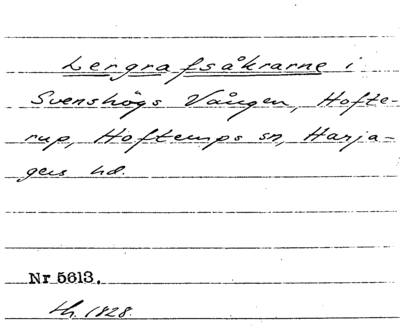 Lergrafsåkrarne i
Svenshögs Vången, Hofte-
rup, Hofterups sn, Harja-
gers hd.
Nr 5613.
th. 1828.